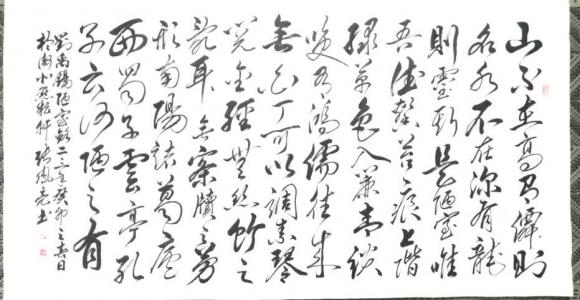 山不在高有僊則
名水不在深有龍
則靈斯是陋室唯
吾德馨苔痕上階
綠草色入簾青談
笑有鴻儒往來
無白丁可以調素琴
閱金經無絲竹之
亂耳無案牘之勞
形南陽諸葛廬
西蜀子雲亭孔
子云何陋之有
劉禹錫陋室銘二〇二三年癸卯之春日
於 軒 書